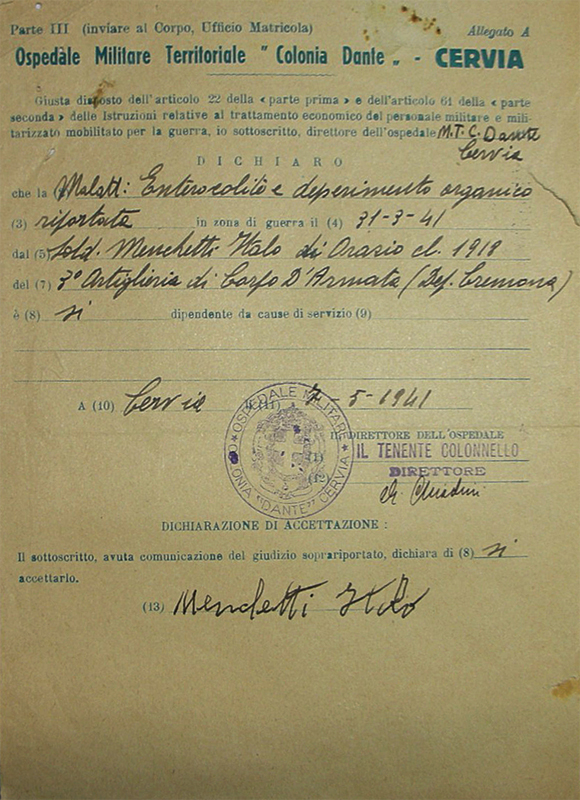 Parte III (inviare al Corpo, Ufficio Matricola) Allegato A
Ospedale Militare Territoriale " Colonia Dante „ - CERVIA
Giusta disposto dell'articolo 22 della « parte prima » e dell'articolo 61 della « parte
seconda » delle Istruzioni relative al trattamento economico del personale militare e mili-
tarizzato mobilitato per la guerra, io sottoscritto, direttore dell'ospedale M.T.C. Dante
Cervia
DICHIARO
che la (Malatt: Enterocolite e deperimento organico
(3) riportata in zona di guerra il (4) 31-3-41
dal (5) Sold. Menchetti Italo di Orazio cl. 1918
del (7) 3º Artiglieria di Corpo D'Armata (Def. Cremona)
è (8) si dipendente da cause di servizio (9)
A (10) Cervia (11) 7-5-1941
OSPEDALE MILITARE
COLONIA "DANTE" CERVIA
IL DIRETTORE DELL'OSPEDALE
IL TENENTE COLONNELLO
DIRETTORE
DICHIARAZIONE DI ACCETTAZIONE :
Il sottoscritto, avuta comunicazione del giudizio soprariportato, dichiara di (8) si
accettarlo.
(13) Menchetti Italo